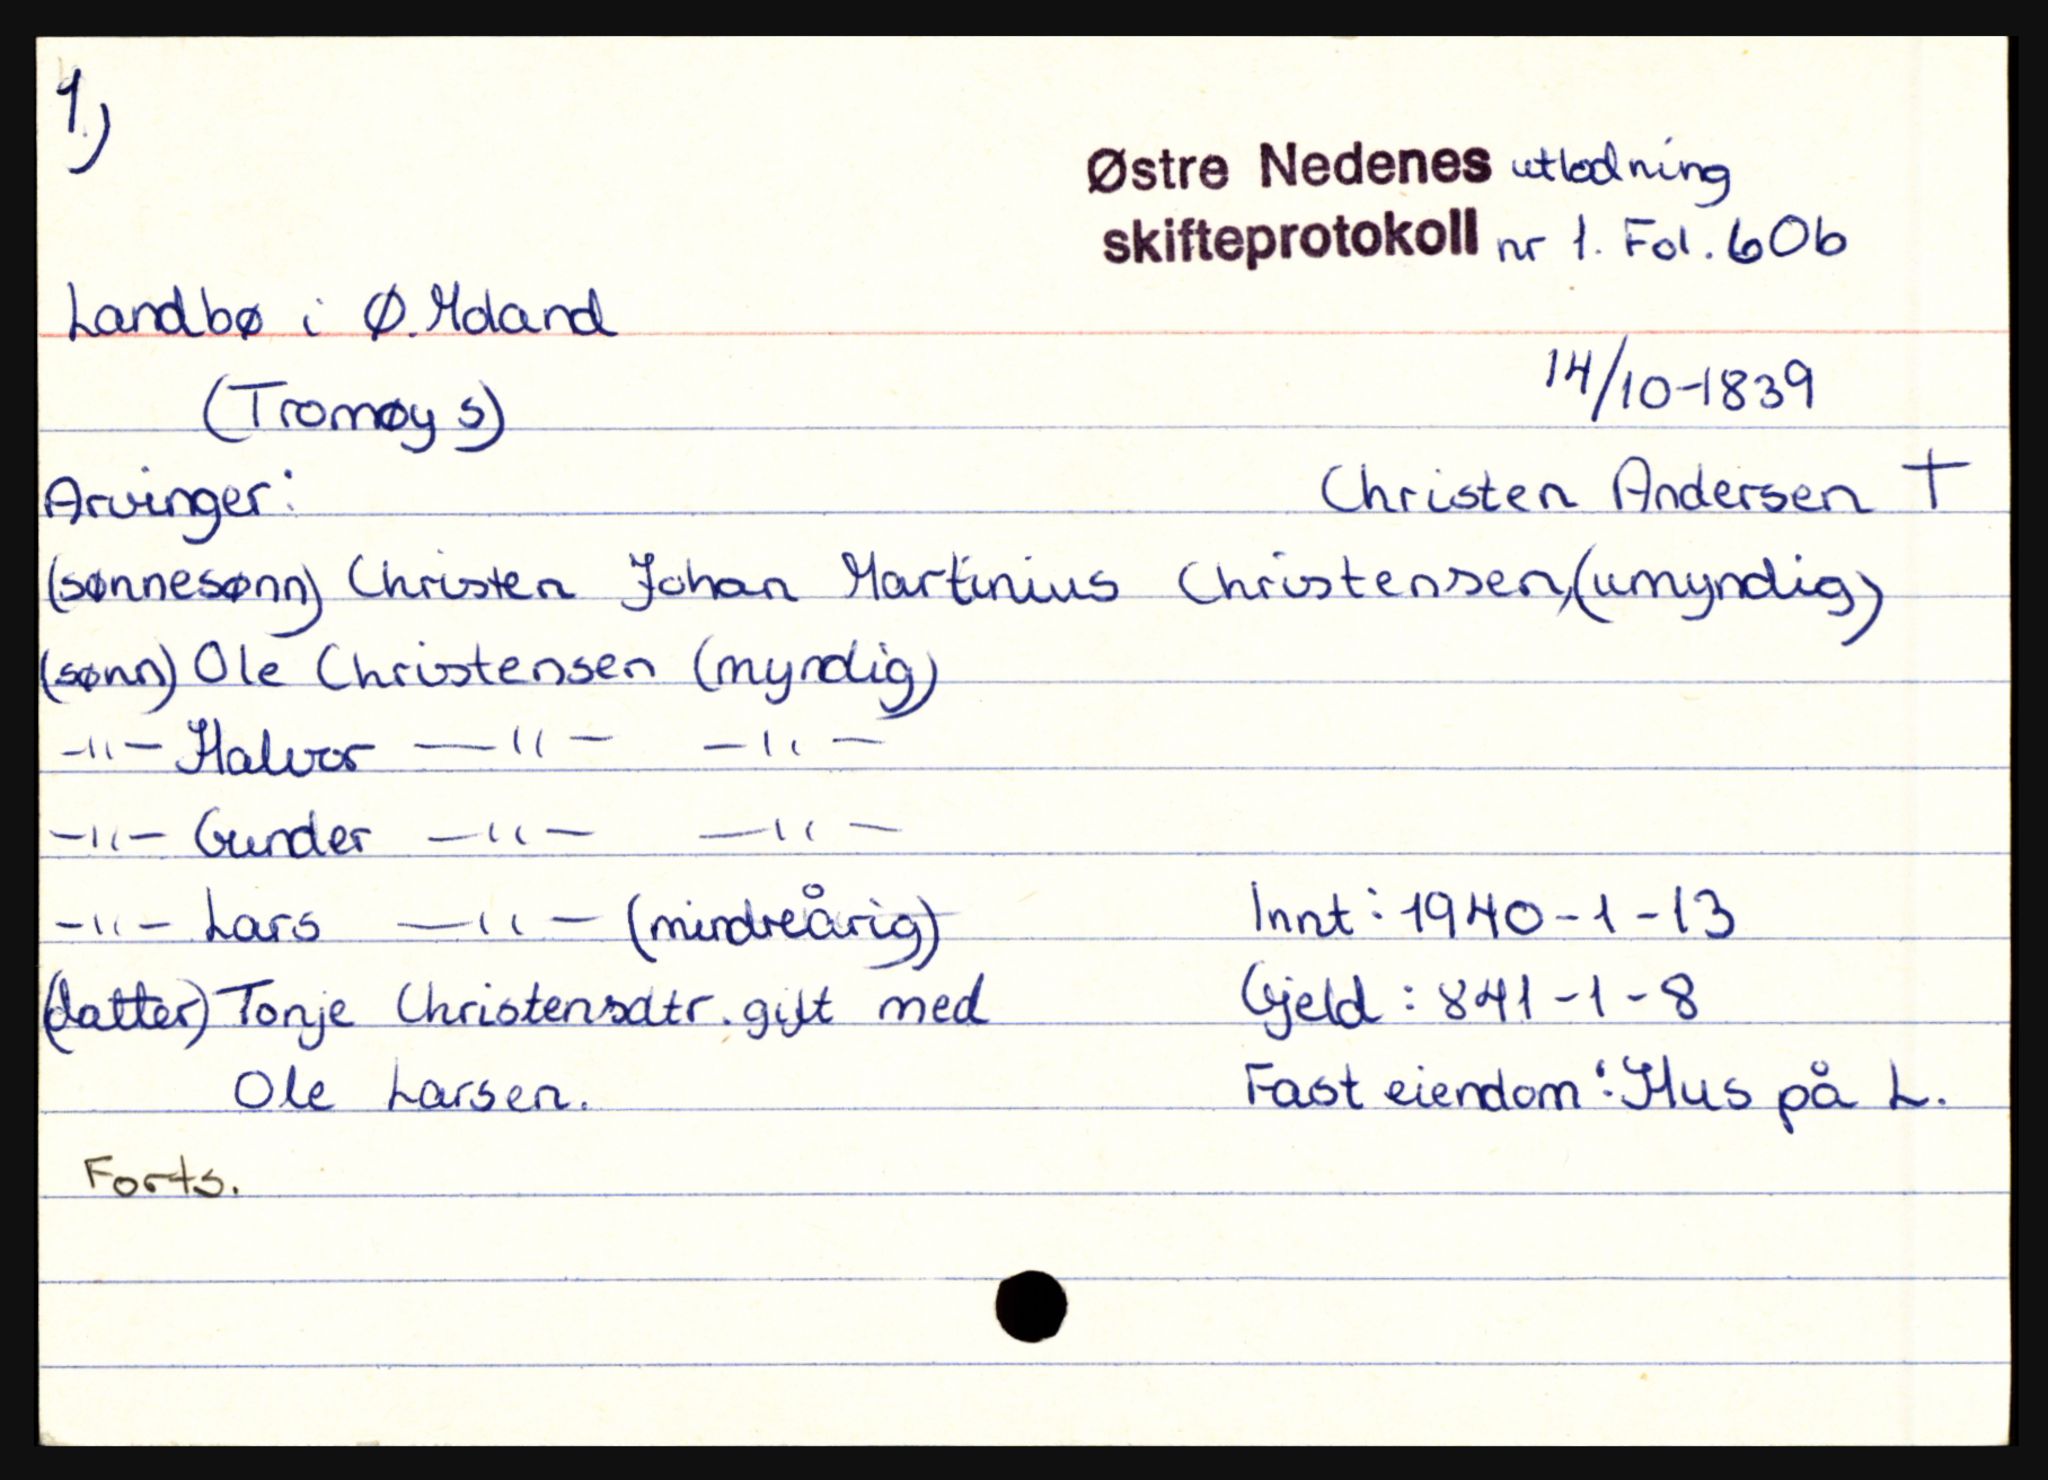 1)
Østre Nedenes utlodning
skifteprotokoll nr 1. Fol. 60b
Landbø i Ø. Moland
(Tromøy s)
14/10-1839
Arvinger:
Christen Andersen †
(sønnesønn) Christen Johan Martinius Christensen, (umyndig)
(sønn) Ole Christensen (myndig)
-"- Halvor -"- -"-
-"- Gunder -"- -"-
-"- Lars -"- (mindreårig)
Innt: 1940-1-13
(datter) Tonje Christensdtr. gift med
Gjeld: 841-1-8
Ole Larsen.
Fast eiendom: Hus på L.
Forts.